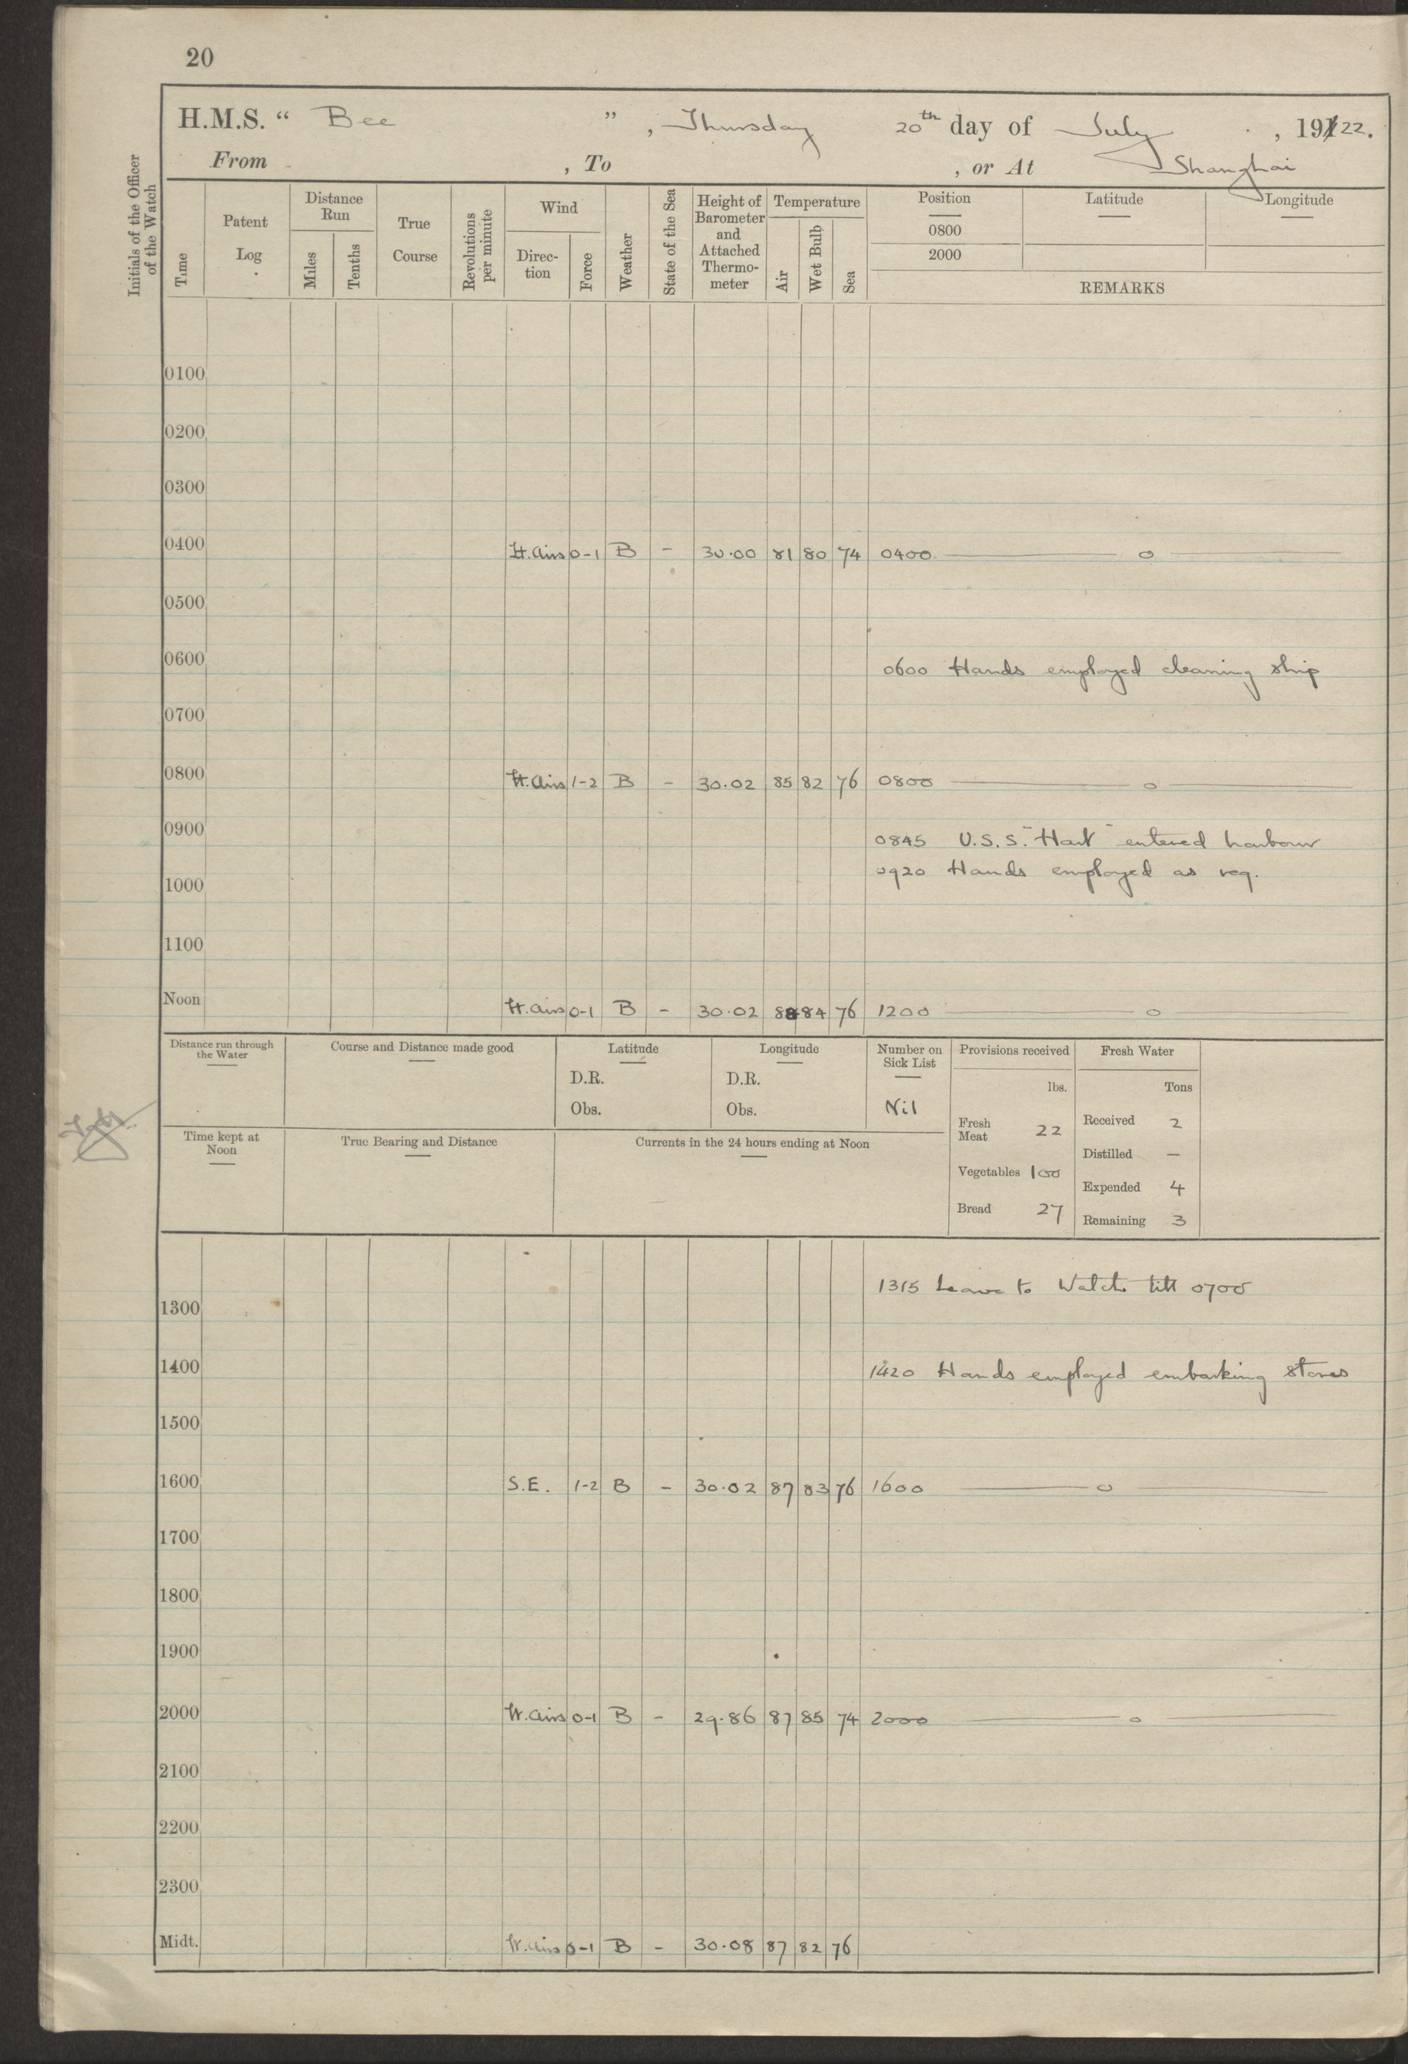 20
H.M.S. “ Bee ” , Thursday 20th day of July , 1922.
From , To , or At Shanghai
Initials of the Officer of the Watch
Time Patent Log Distance Run Miles Tenths True Course Revolutions per minute Wind Direction Force Weather State of the Sea Height of Barometer and Attached Thermometer Temperature Air Wet Bulb Sea
Position Latitude Longitude
0800
2000
REMARKS
0100
0200
0300
0400 Lt. Airs 0-1 B - 30.00 81 80 74 0400 o
0500
0600 0600 Hands employed cleaning ship
0700
0800 Lt. Airs 1-2 B - 30.02 85 82 76 0800 o
0900 0845 U.S.S. "Hart" entered harbour
0920 Hands employed as req.
1000
1100
Noon Lt. airs 0-1 B - 30.02 84 76 1200 o
Distance run through the Water Course and Distance made good Latitude Longitude Number on Sick List Provisions received Fresh Water
lbs. Tons
D.R. D.R.
Obs. Obs. Nil
Fresh Meat 22 Received 2
Time kept at Noon True Bearing and Distance Currents in the 24 hours ending at Noon
Distilled —
Vegetables 100 Expended 4
Bread 27 Remaining 3
1315 Leave to Watch till 0700
1300
1400 1420 Hands employed embarking stores
1500
1600 S.E. 1-2 B - 30.02 87 83 76 1600 o
1700
1800
1900
2000 Lt. airs 0-1 B - 29.86 87 85 74 2000 o
2100
2200
2300
Midt. Lt. airs 0-1 B - 30.08 87 82 76